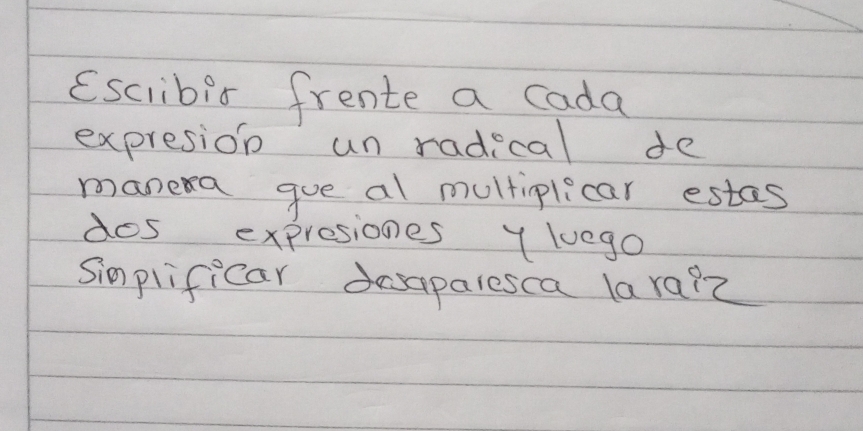 Escribir frente a cada
expresión un radical de
manera que al multiplicar estas
dos expresiones y luego
simplificar desaparesca la raiz